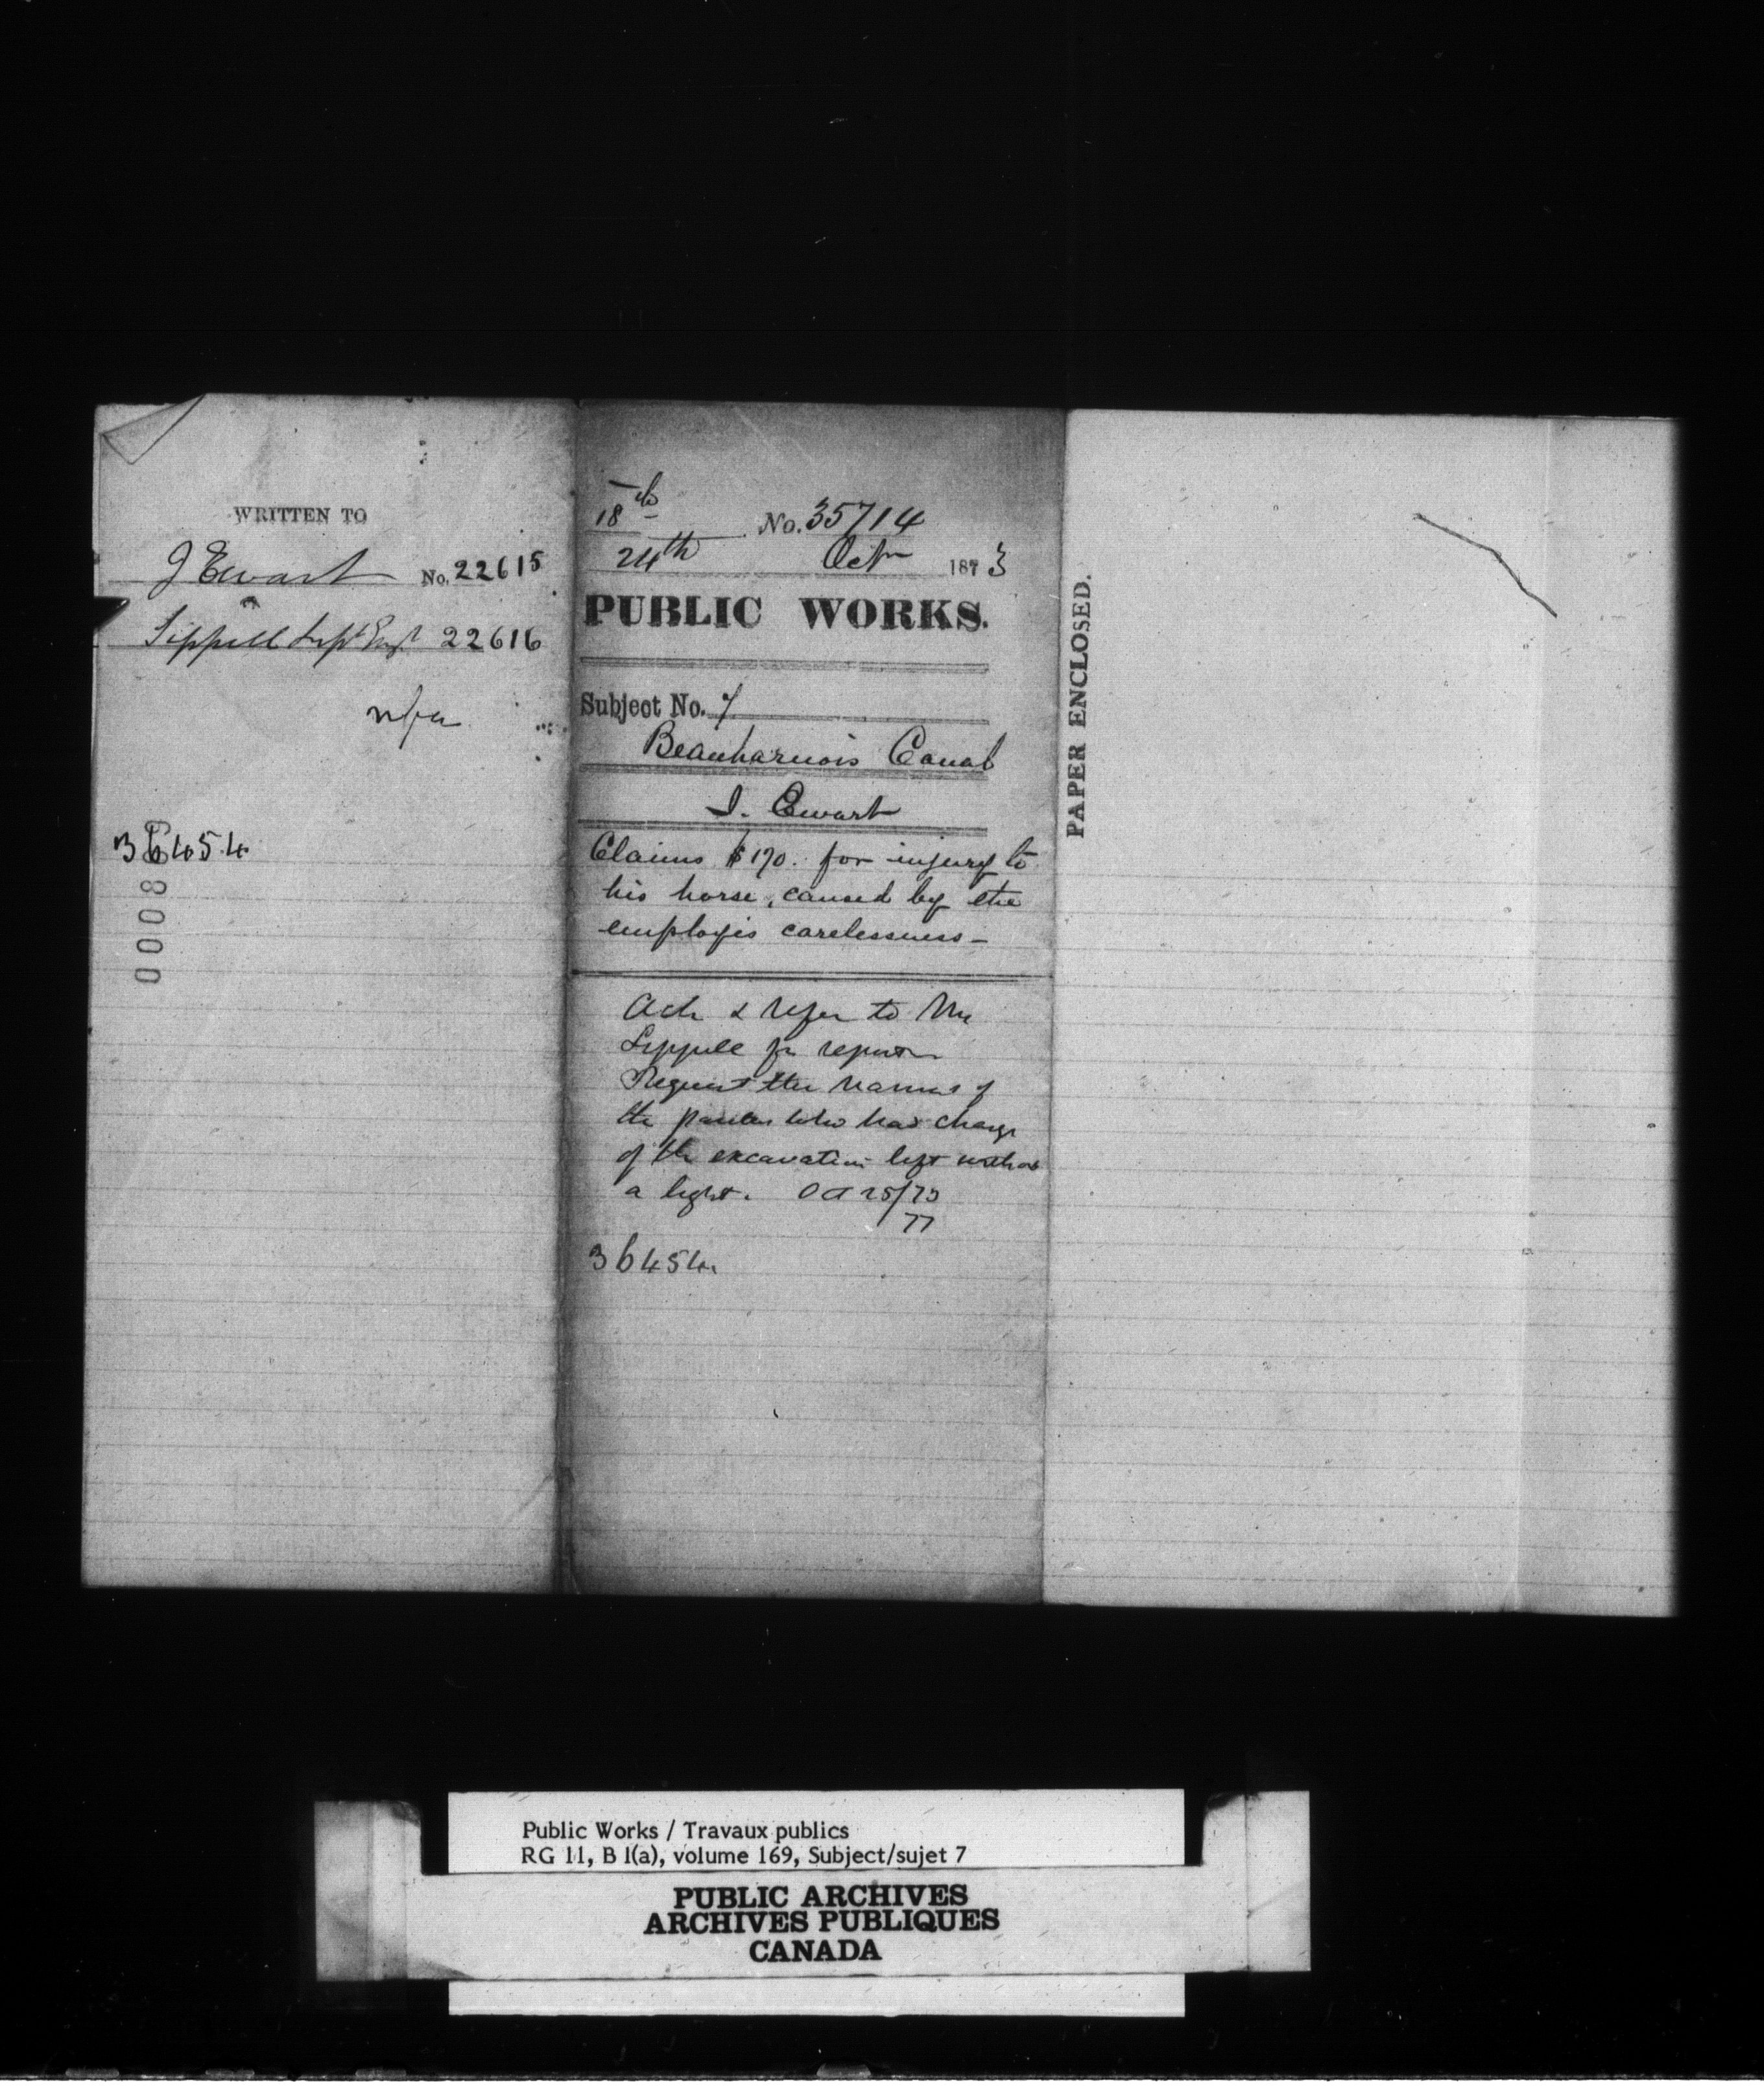 WRITTEN TO
J Ewart No. 22615
Sippell Supt Engr 22616
nfa
36454
0008
18th No. 35714
24th Octr 1873
PUBLIC WORKS.
Subject No. 7
Beauharnois Canal
J. Ewart
Claims $170. for injury to
his horse, caused by the
employés carelessness-
Ack & refer to Mr
Sippell for report
Request the names of
the parties who had charge
of the excavation left without
a light. Oct 25/73
36454
PAPER ENCLOSED.
Public Works / Travaux publics
RG 11, B 1(a), volume 169, Subject/sujet 7
PUBLIC ARCHIVES
ARCHIVES PUBLIQUES
CANADA